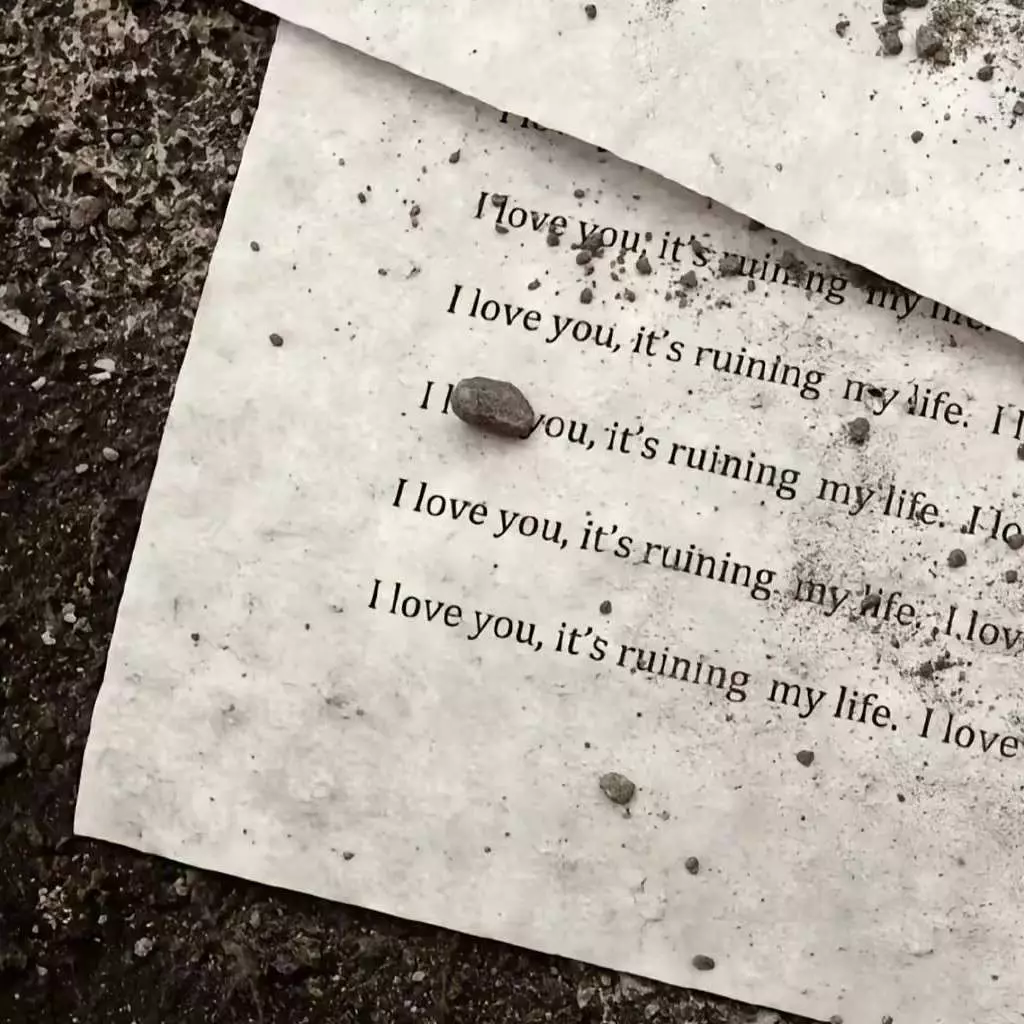 I love you, it's ruining my
I love you, it's ruining my life. I
I you, it's ruining my life. I
I love you, it's ruining my life. I
I love you, it's ruining my life. I love